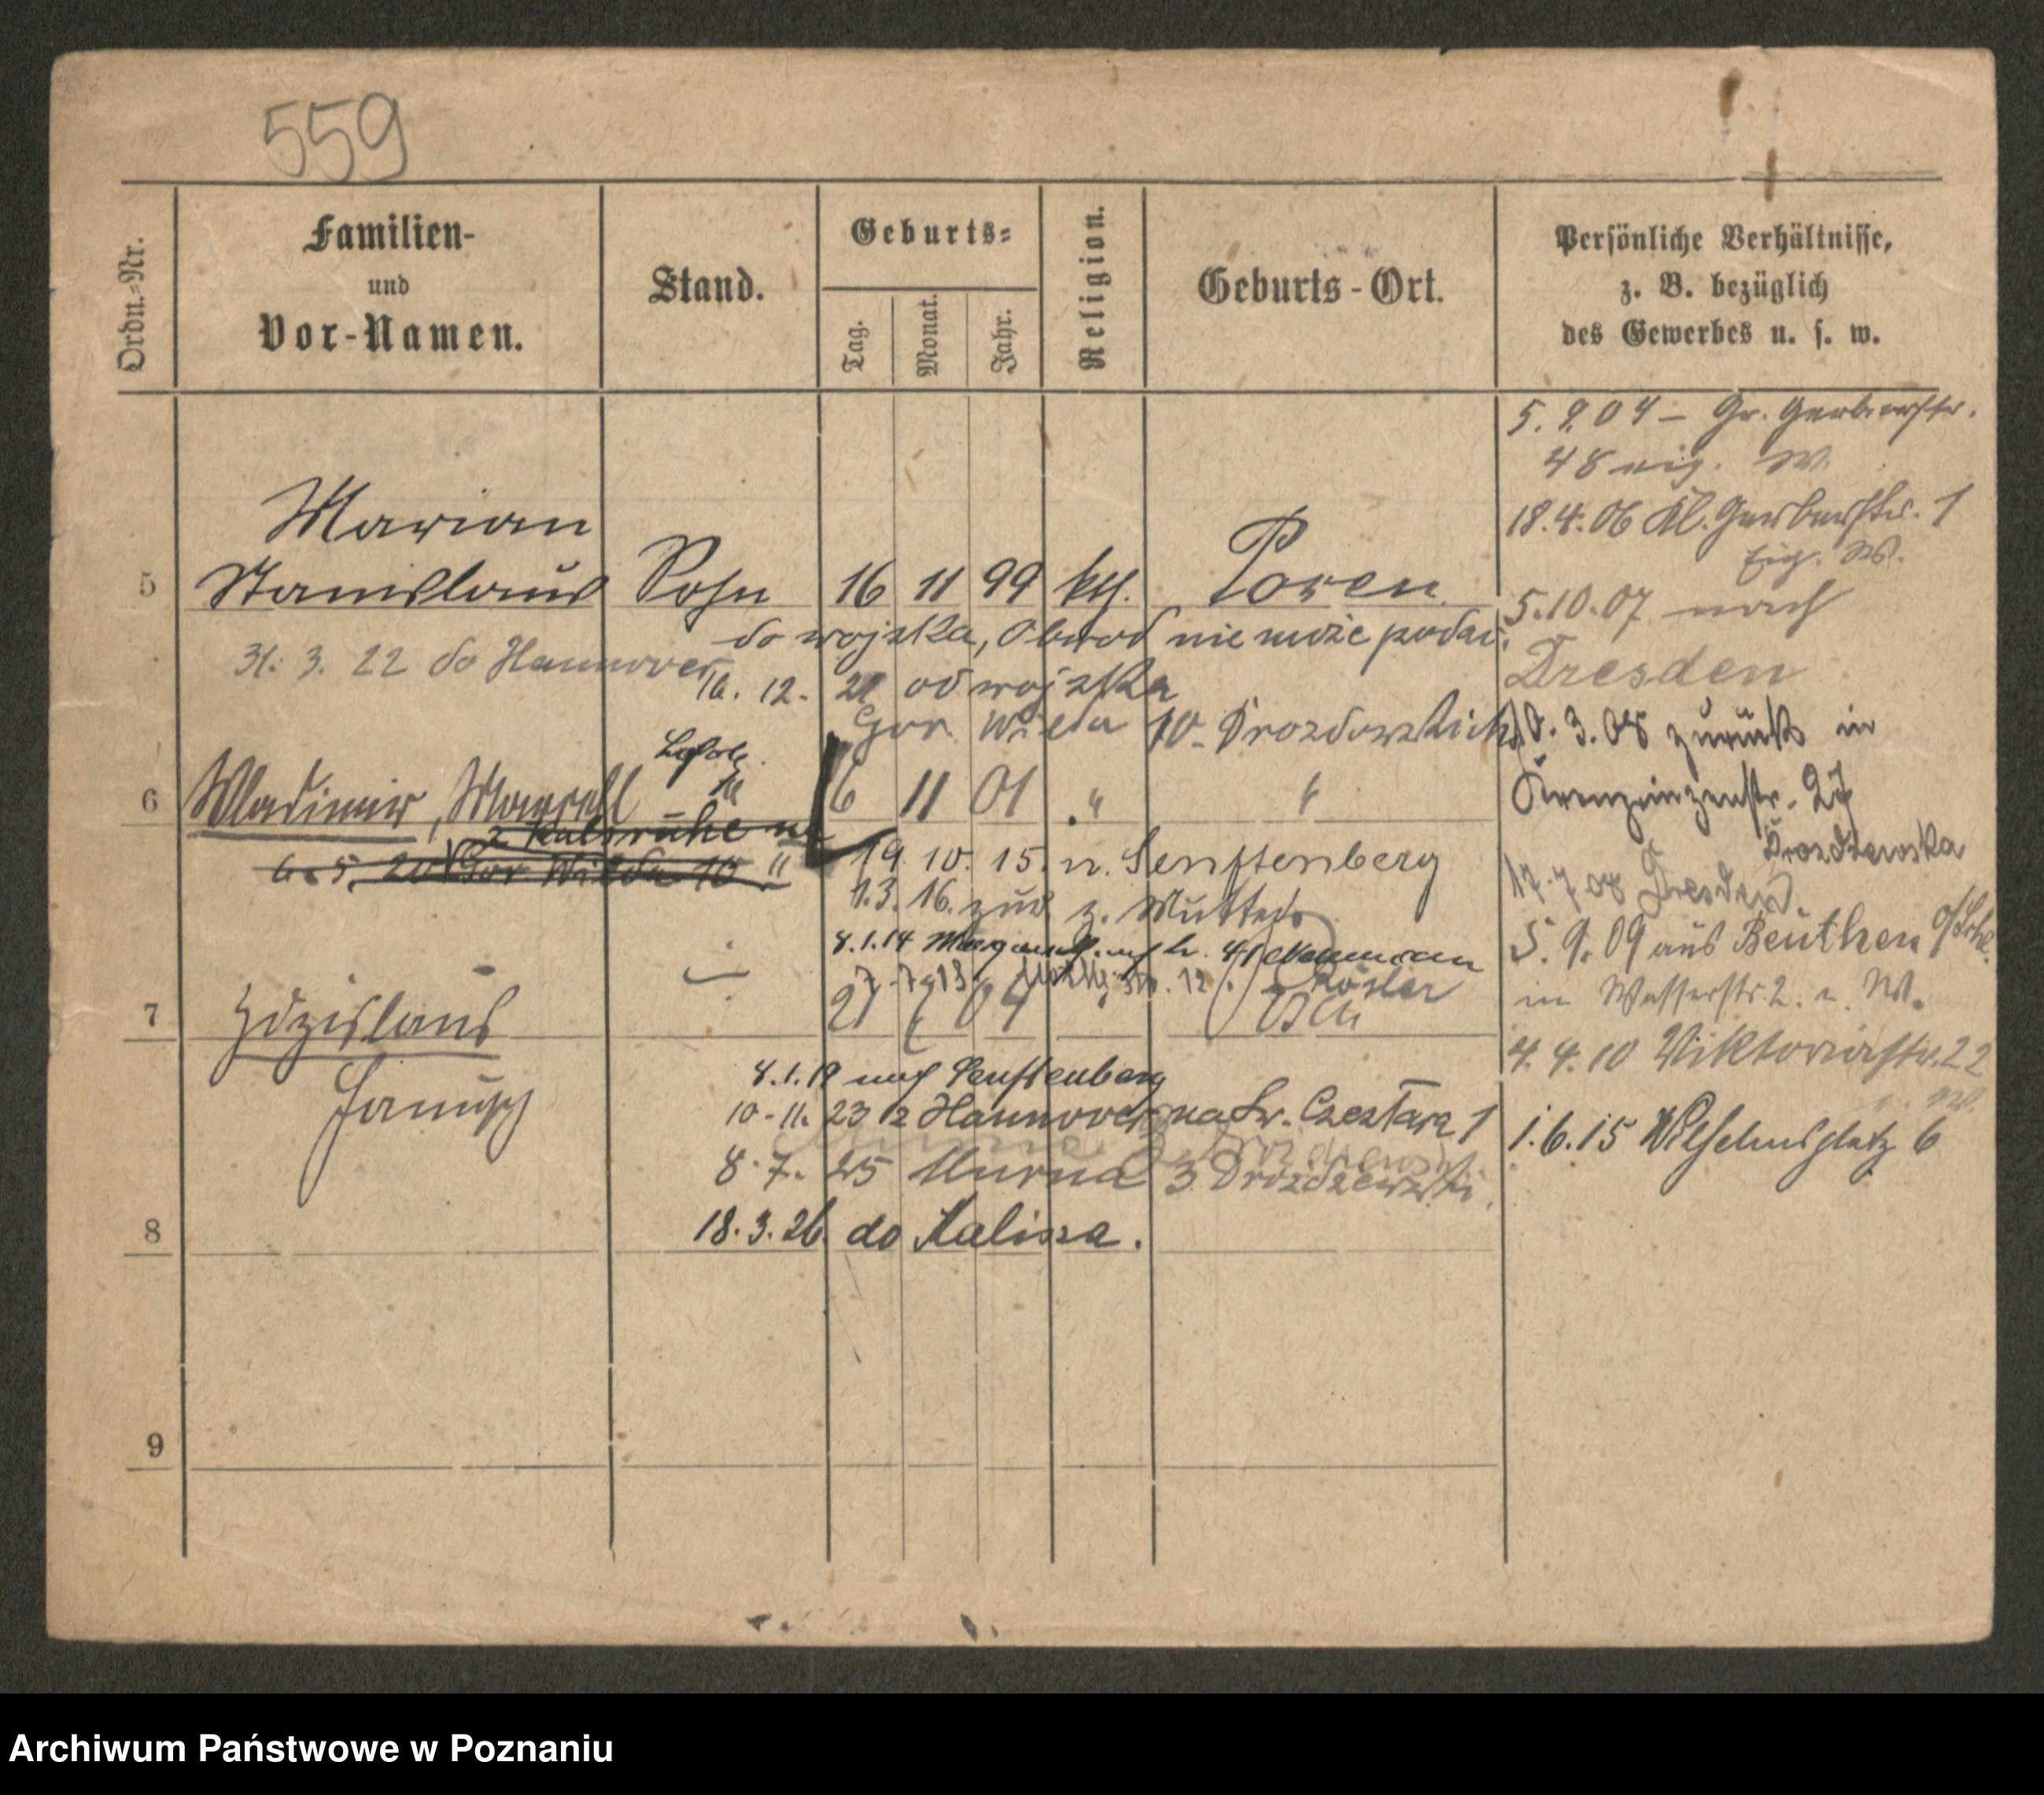 559
Ordn.=Nr.
Familien-
und
Vor-Namen.
Stand.
Geburts=
Tag.
Monat.
Jahr.
Religion.
Geburts-Ort.
Persönliche Verhältnisse,
z. B. bezüglich
des Gewerbes u. s. w.
Marian
5 Stanislaus Sohn 16 11 99 kth. Posen
do wojska, Obwod nie może podać.
31. 3. 22 do Hannover
16. 12. 21 od wojska
Gor. Wilda 10 Drozdowskich
6 Wladimir, 6 11 01 " "
z Kalsruhe na
6. 5. 20 Gor Wilda 10 "
19. 10. 15. n. Senftenberg
1. 3. 16. zur. z. Mutter
8. 1. 14 41 Neumann
7. 7. 13 12 Rösler
7 Zdzislaus 21 04
8. 1. 19 nach Senftenberg
10. 11. 23 z Hannover na Sw. Czesława 1
8. 7. 25 Murna 3 Drozdzewski
8 18. 3. 26 do Kalisza.
9
5. 04 – Gr. Gerberstr.
48 eig. W.
18. 4. 06 Kl. Gerberstr. 1
Eig. W.
5. 10. 07 nach
Dresden
10. 3. 08 zurück in
Kronprinzenstr. 27
Drozdzewska
17. 7 08 Dresden.
5. 9. 09 aus Beuthen O/Schl.
in Wasserstr. 2. W.
4. 4. 10 Viktoriastr. 22
W.
1. 6. 15 Wilhelmsplatz 6
Archiwum Państwowe w Poznaniu